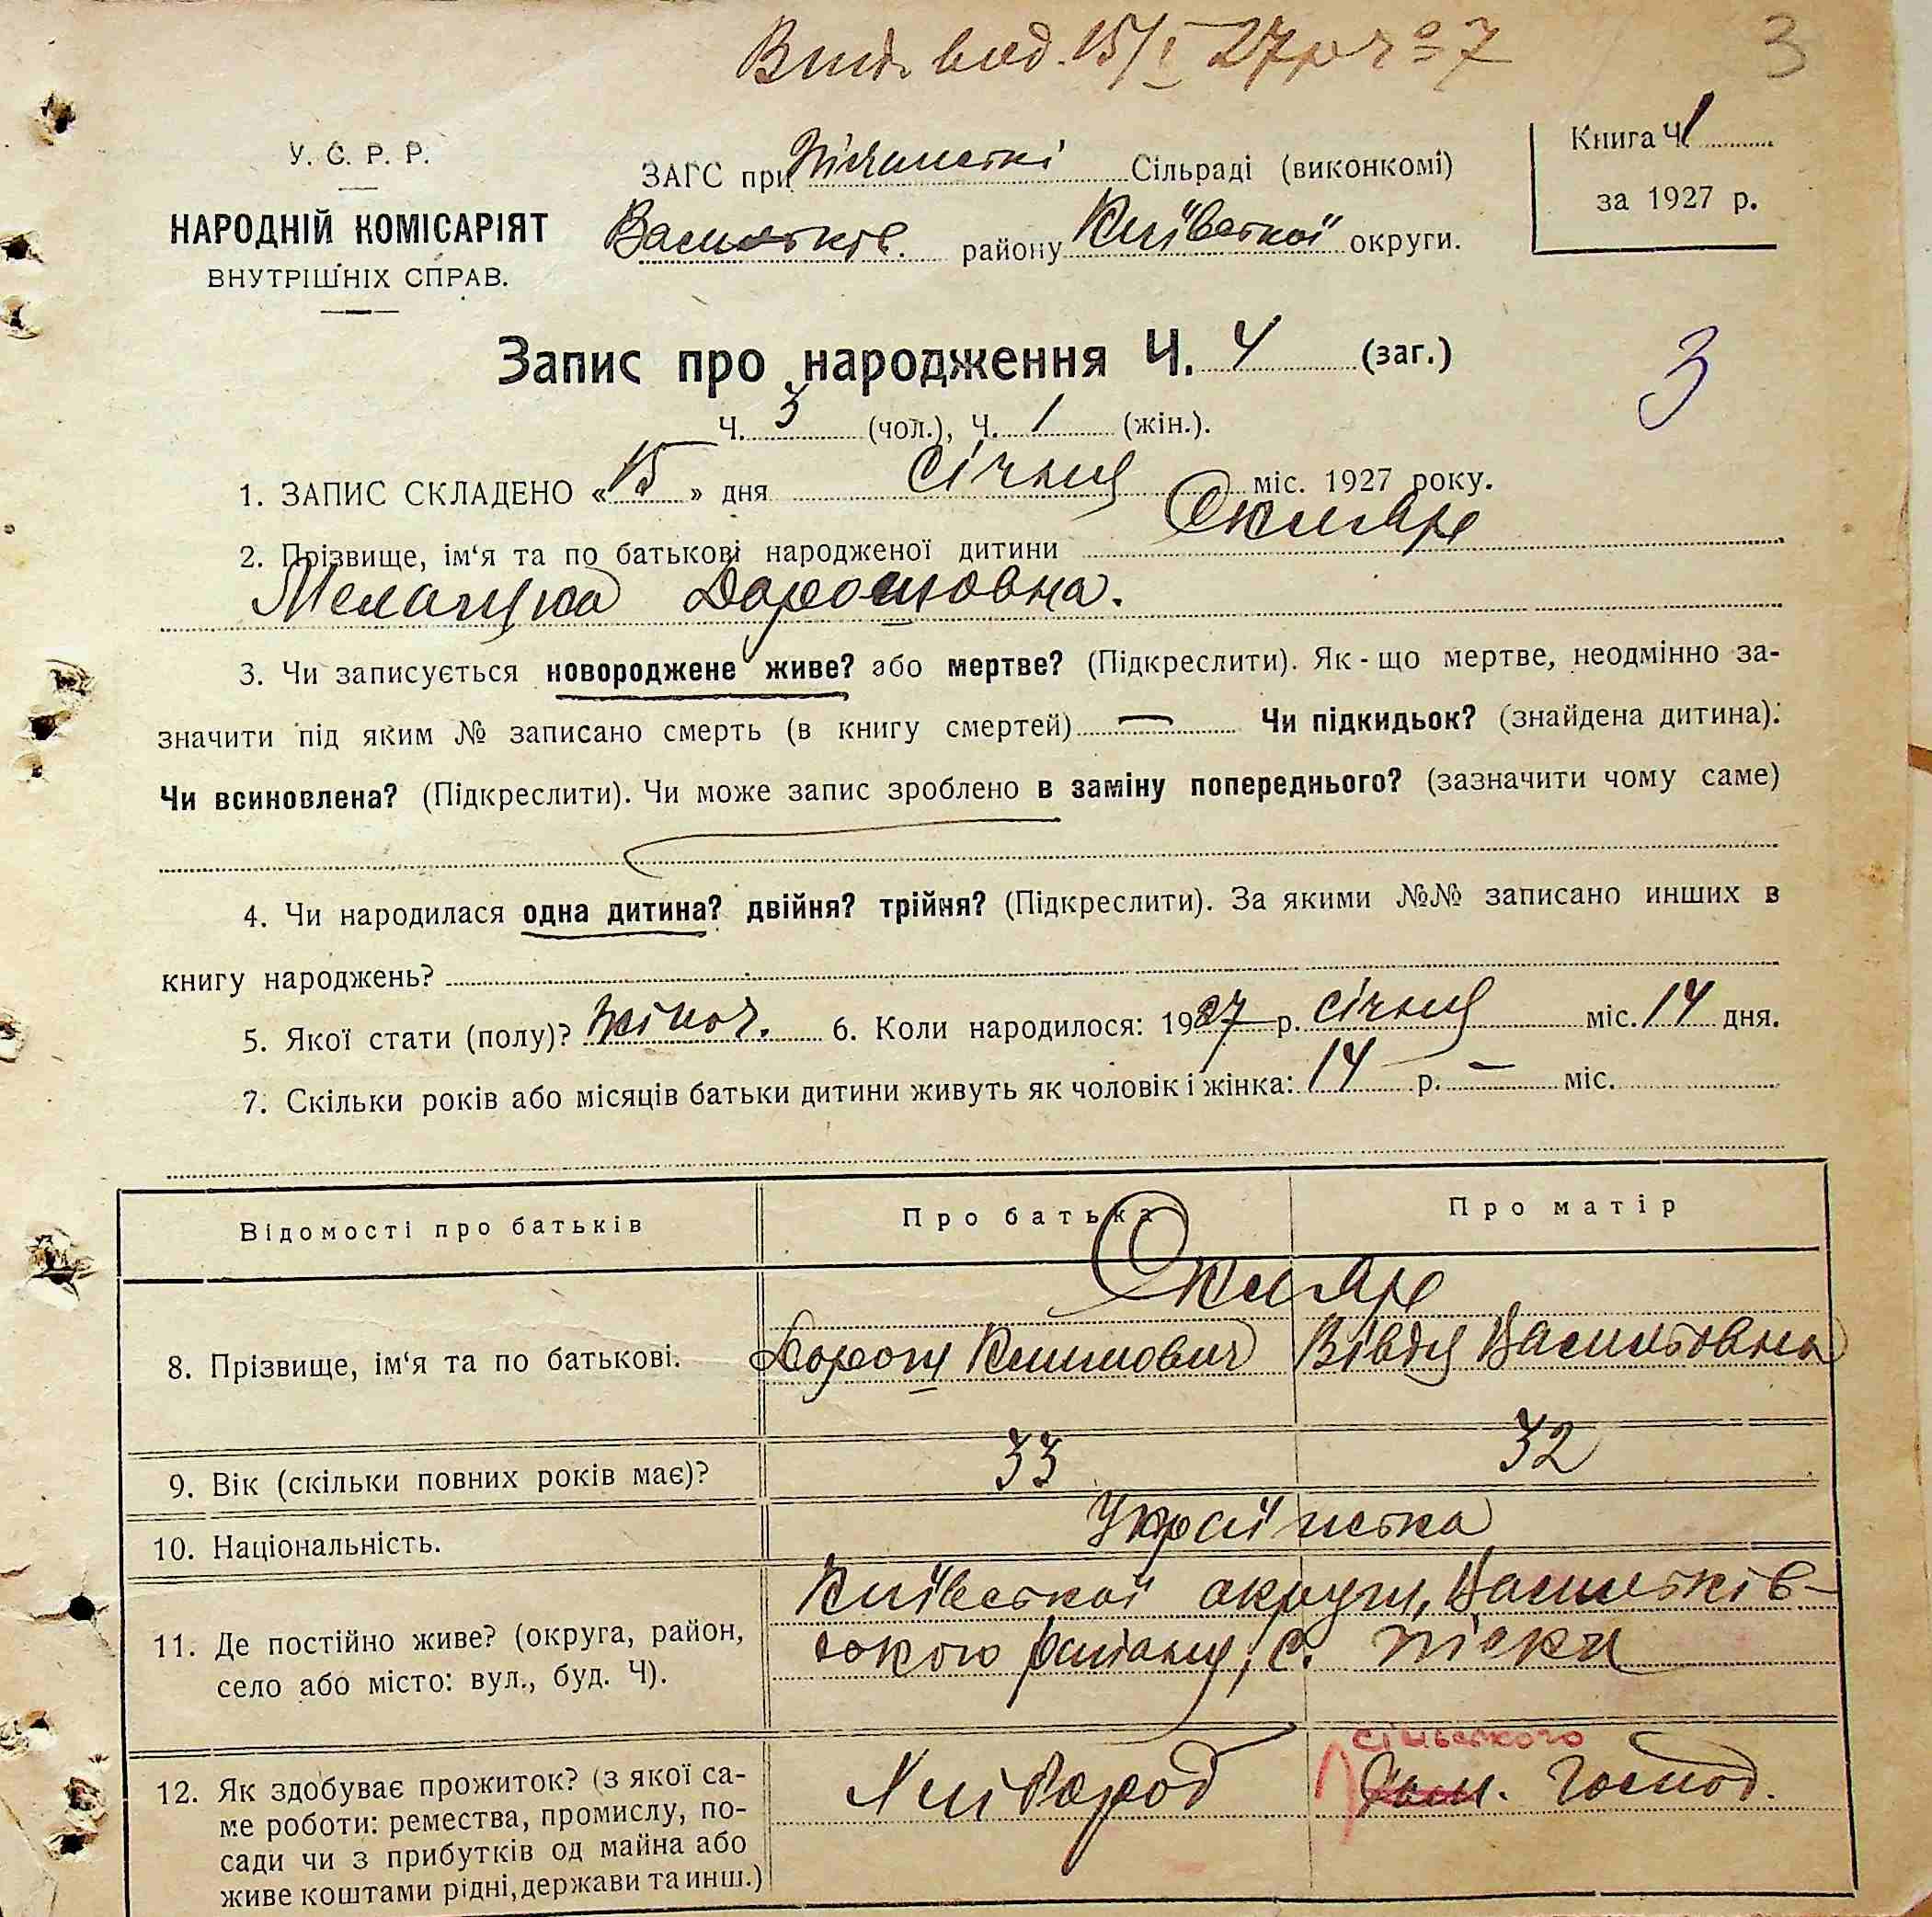 Вид. вид. 15/I 27 р ч 7
3
У. С. Р. Р.
НАРОДНІЙ КОМІСАРІЯТ
ВНУТРІШНІХ СПРАВ.
ЗАГС при Піщанській Сільраді (виконкомі)
Васильків. району Київської округи.
Книга Ч. 1
за 1927 р.
Запис про народження Ч. 4 (заг.)
3
Ч. 3 (чол.), Ч. 1 (жін.).
1. ЗАПИС СКЛАДЕНО «15» дня січня міс. 1927 року.
2. Прізвище, ім‘я та по батькові народженої дитини Скляр
Меланія Дорошовна.
3. Чи записується новороджене живе? або мертве? (Підкреслити). Як-що мертве, неодмінно за-
значити під яким № записано смерть (в книгу смертей) — Чи підкидьок? (знайдена дитина).
Чи всиновлена? (Підкреслити). Чи може запис зроблено в заміну попереднього? (зазначити чому саме)
4. Чи народилася одна дитина? двійня? трійня? (Підкреслити). За якими №№ записано инших в
книгу народжень?
5. Якої стати (полу)? жіноч. 6. Коли народилося: 1927 р. січня міс. 14 дня.
7. Скільки років або місяців батьки дитини живуть як чоловік і жінка: 14 р. — міс.
Відомості про батьків Про батька Про матір
Скляр
8. Прізвище, ім‘я та по батькові. Дорош Климович Вівдя Васильовна
9. Вік (скільки повних років має)? 33 32
10. Національність. Українська
11. Де постійно живе? (округа, район,
село або місто: вул., буд. Ч).
Київської округи, Васильків-
ського району, с. Піски
12. Як здобуває прожиток? (з якої са-
ме роботи: ремества, промислу, по-
сади чи з прибутків од майна або
живе коштами рідні, держави та инш.)
Хлібороб
сільського
Дом. Господ.